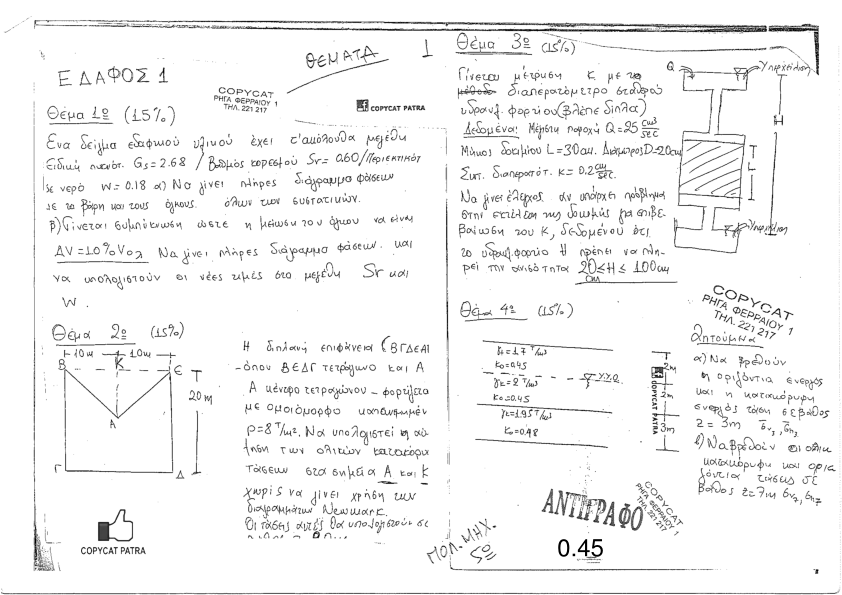 ΘΕΜΑΤΑ
1
ΕΔΑΦΟΣ 1
COPYCAT
ΡΗΓΑ ΦΕΡΡΑΙΟΥ 1
ΤΗΛ. 221 217
COPYCAT PATRA
Θέμα 1º (15%)
Ένα δείγμα εδαφικού υλικού έχει τ'ακόλουθα μεγέθη
Ειδική πυκνότ. Gs=2.68 / Βαθμός κορεσμού Sr=0.60 / Περιεκτικότ
σε νερό w=0.18 α) Να γίνει πλήρες διάγραμμα φάσεων
με τα βάρη και τους όγκους όλων των συστατικών.
β) Γίνεται συμπύκνωση ώστε η μείωση του όγκου να είναι
ΔV=10%Vολ Να γίνει πλήρες διάγραμμα φάσεων και
να υπολογιστούν οι νέες τιμές στα μεγέθη Sr και
W.
Θέμα 2º (15%)
10m
10m
B
K
E
A
20m
Γ
Δ
Η διπλανή επιφάνεια (ΒΓΔΕΑ)
-όπου ΒΕΔΓ τετράγωνο και Α
Α κέντρο τετραγώνου - φορτίζεται
με ομοιόμορφο κατανεμημέν
p=8 T/m². Να υπολογιστεί η αύ
ξηση των ολικών κατακόρυ
τάσεων στα σημεία Α και Κ
χωρίς να γίνει χρήση των
διαγραμμάτων Newmark.
Οι τάσεις αυτές θα υπολογιστούν σε
COPYCAT PATRA
ΠΟΛ. ΜΗΧ.
5º
Θέμα 3º (15%)
Γίνεται μέτρηση κ με το
μέθοδο διαπερατόμετρο σταθερού
υδραυλ. φορτίου (βλέπε δίπλα)
Δεδομένα: Μέγιστη παροχή Q=25 cm³/sec
Μήκος δοκιμίου L=30cm. Διάμετρος D=20cm
Συντ. διαπερατότ. κ=0.2 cm/sec.
Να γίνει έλεγχος αν υπάρχει πρόβλημα
στην εκτέλεση της δοκιμής για επιβε-
βαίωση του κ, δεδομένου ότι
το υδραυλ. φορτίο H πρέπει να πλη-
ρεί την ανισότητα 20≤H≤100cm
cm
Q
Υπερχείλιση
H
L
Υπερχείλιση
Θέμα 4º (15%)
γ=1.7 T/m³
κο=0.45
γκ=2 T/m³
Υ.Υ.Ο.
κο=0.45
γκ=1.95 T/m³
κο=0.48
2m
2m
3m
COPYCAT PATRA
COPYCAT
ΡΗΓΑ ΦΕΡΡΑΙΟΥ 1
ΤΗΛ. 221 217
Ζητούμενα
α) Να βρεθούν
η οριζόντια ενεργός
και η κατακόρυφη
ενεργός τάση σε βάθος
z=3m σ̄v3, σ̄h3
β) Να βρεθούν οι ολικ
κατακόρυφη και οριζ
όντια τάσεις σε
βάθος z=7m σv7, σh7
ΑΝΤΙΓΡΑΦΟ
COPYCAT
ΡΗΓΑ ΦΕΡΡΑΙΟΥ 1
ΤΗΛ. 221 217
0.45